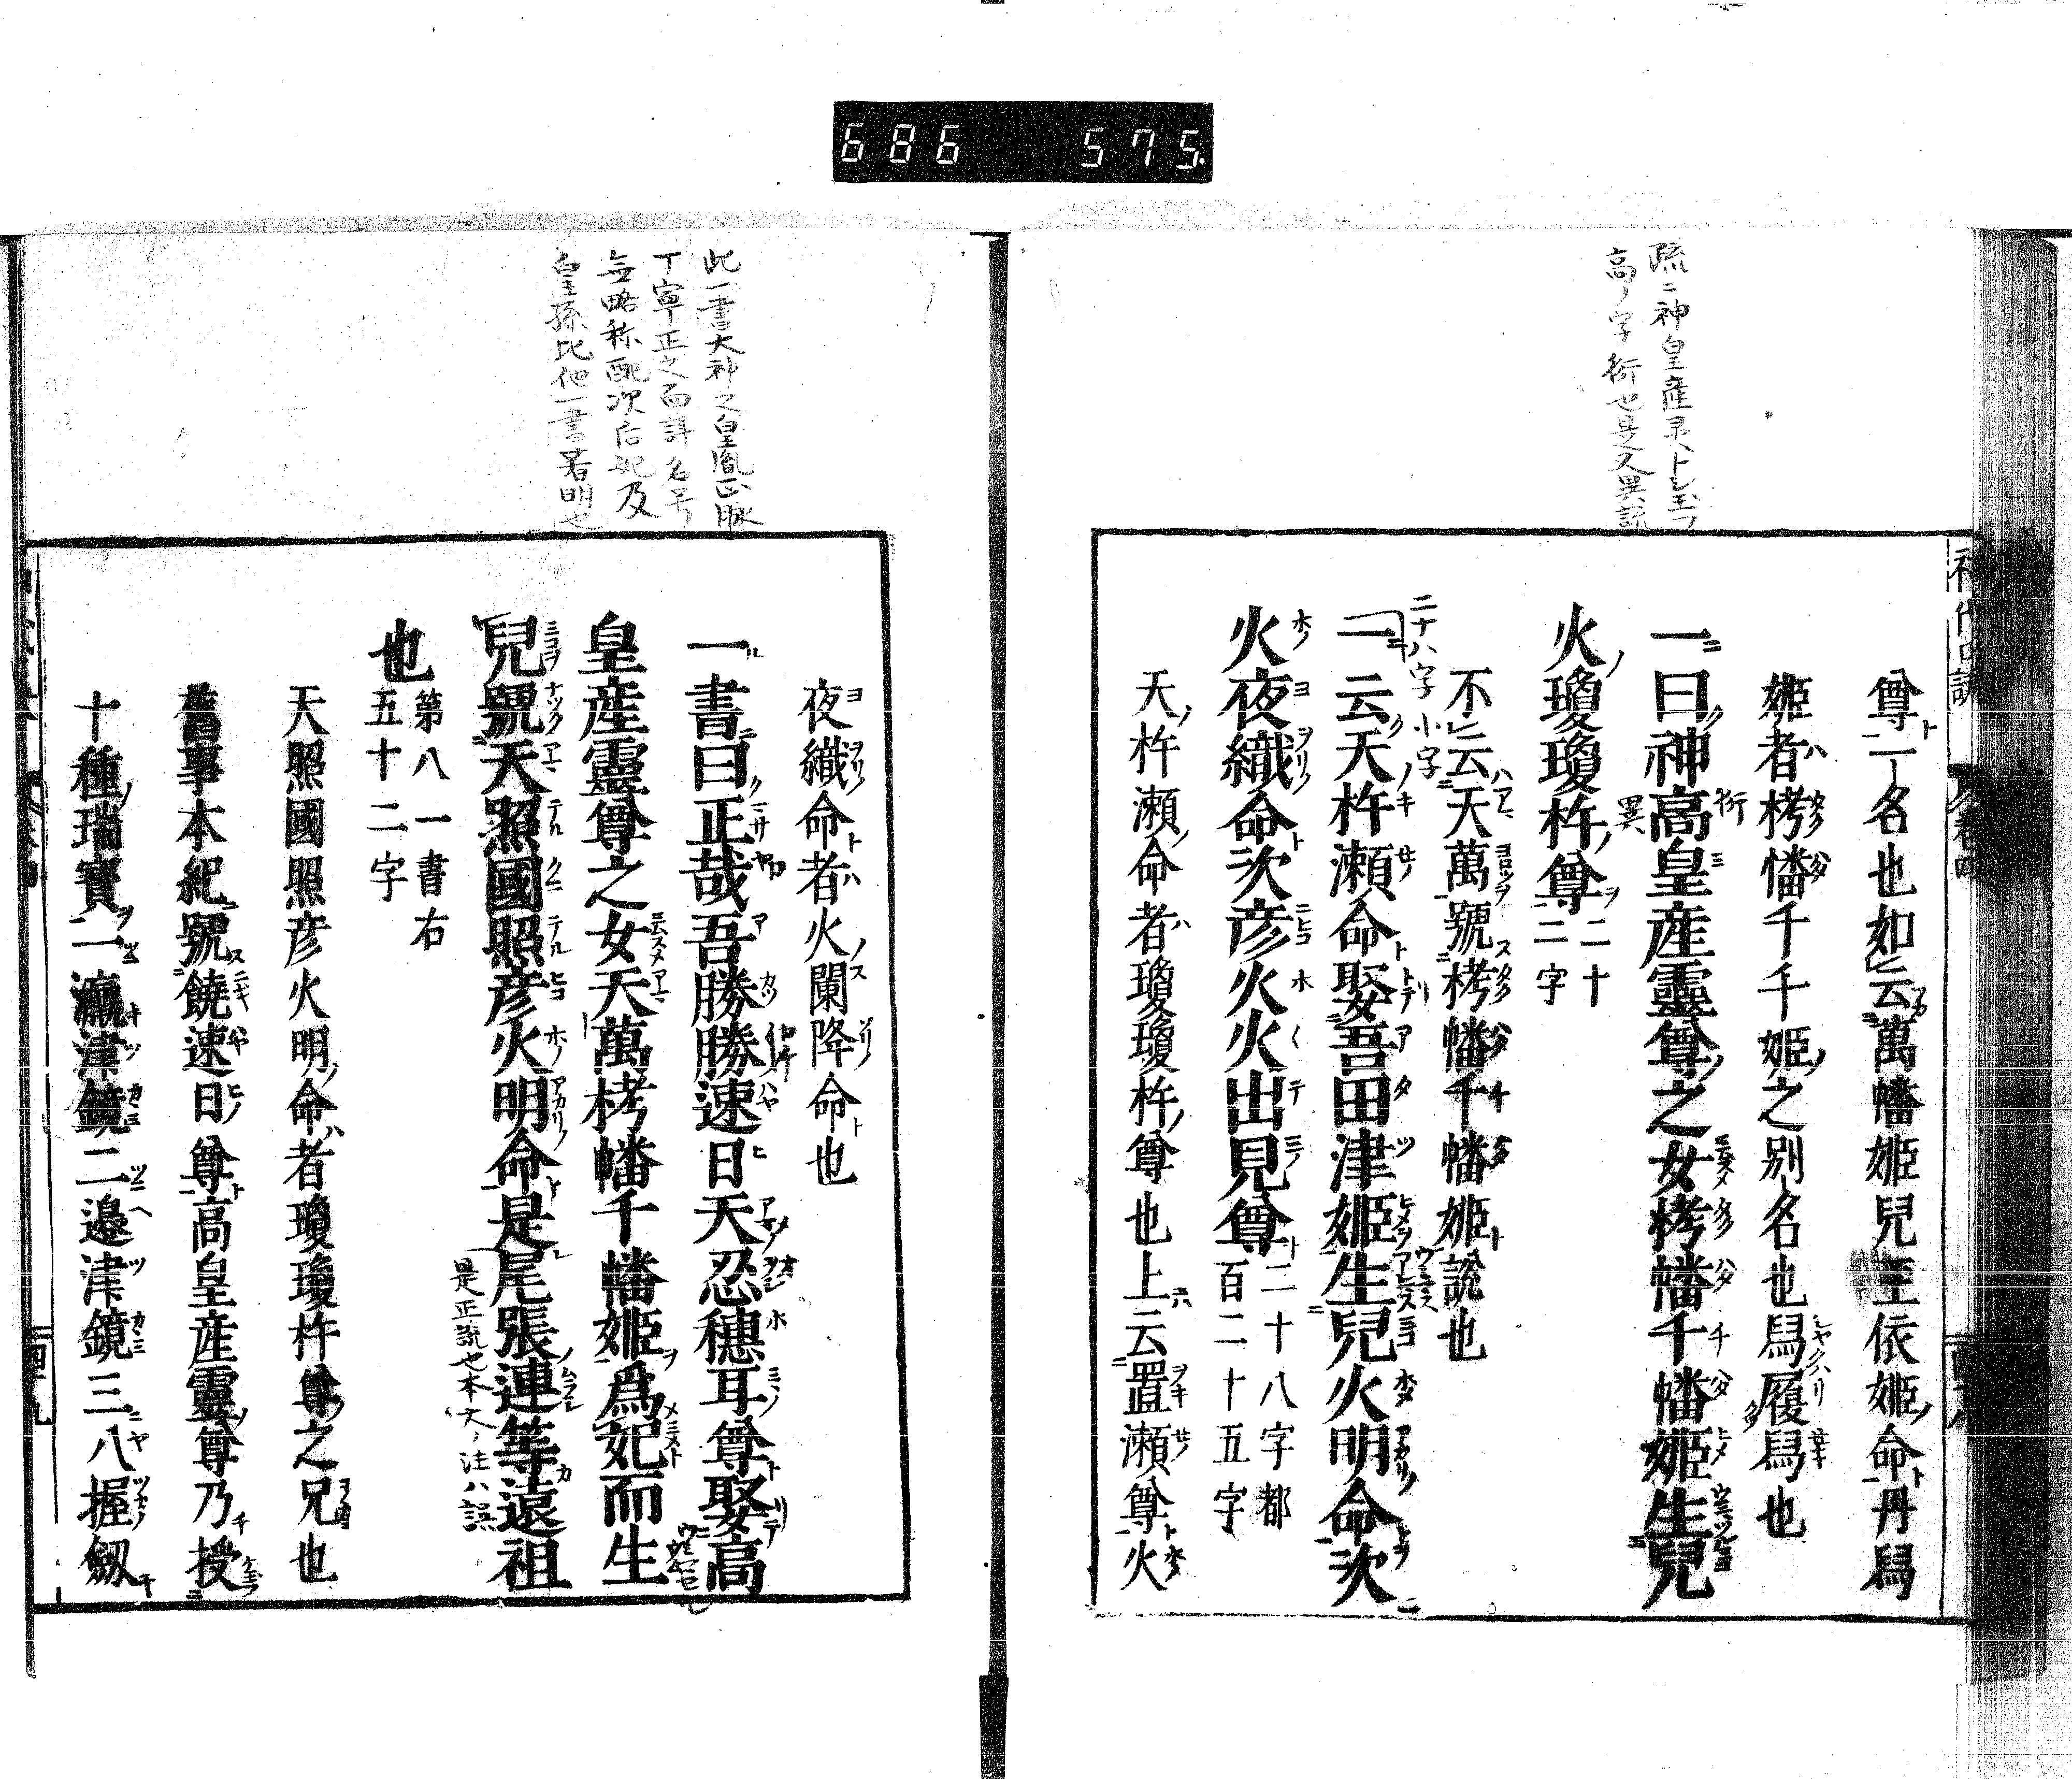 686 575
疏ニ神皇産灵トシ玉フ
高ノ字衍也是又異説
尊ト一名也如云萬幡姫兒玉依姫ノ命ト丹舄
姫者ハ栲幡千千姫ノ之別名也舄履舄也
一ニ曰ク神高皇産靈尊ノ之女栲幡千幡姫生兒
衍
異
火ノ瓊瓊杵ノ尊ヲ
二十
二字
不云天萬號栲幡千幡姫ト說也
二十八字小字
一云ク天ノ杵瀬命娶吾田津姫生兒火明命次
火夜織命ト次彦火火出見尊ト
二十八字都
百二十五字
天ノ杵瀬ノ命者ハ瓊瓊杵ノ尊也上云置瀬尊ト火
夜織ノ命ト者ハ火ノ闌降ノ命ト也
此一書大神之皇胤正脉
丁寧正之而詳名号
無略称配次后妃及
皇孫比他一書著明也
一書曰ク正哉吾勝勝速日天忍穗耳尊娶高
皇産靈尊之女天萬栲幡千幡姫爲妃而生
兒號天照國照彦火明命ト是レ尾張ノ連等カ遠祖
是正説也本文ノ注ハ誤
也
第八一書右
五十二字
天照國照彦火明ノ命ハ者瓊瓊杵尊ノ之兄也
舊事本紀ニ號饒速日ノ尊ト高皇産靈ノ尊乃チ授
十種ノ瑞寶ヲ一瀛津鏡二邊津鏡三八握劔